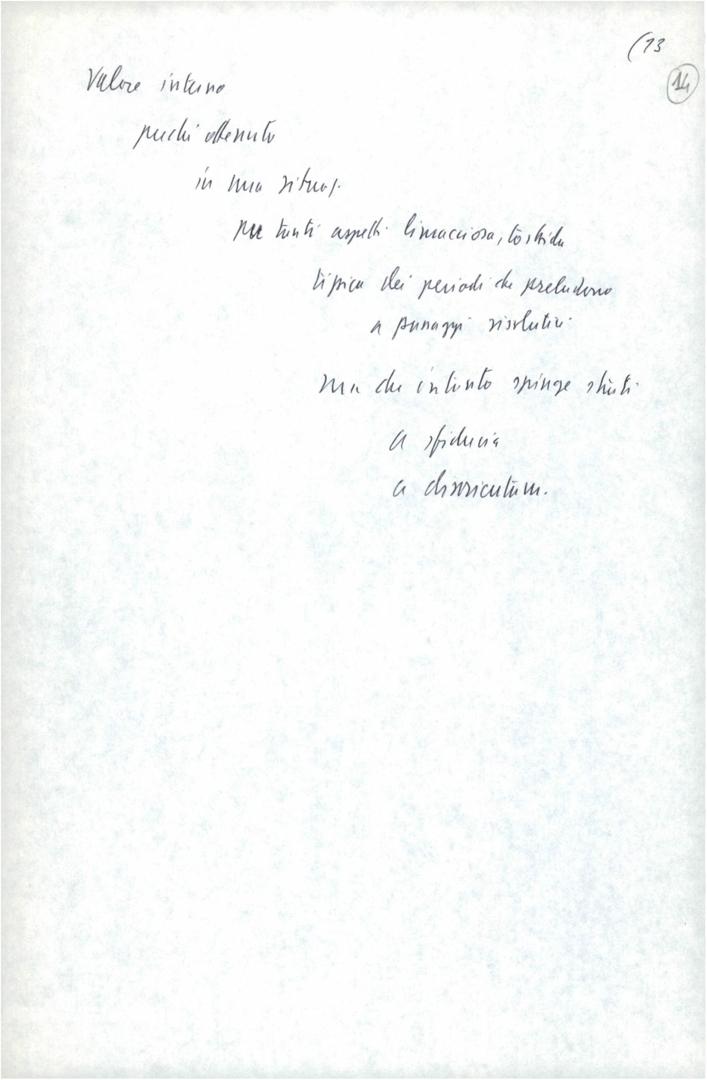 (13
14
Valore interno
perché ottenuto
in una situaz.
per tanti aspetti limacciosa, torbida
tipica dei periodi che preludono
a passaggi risolutivi
ma che intanto spinge
a sfiducia
a